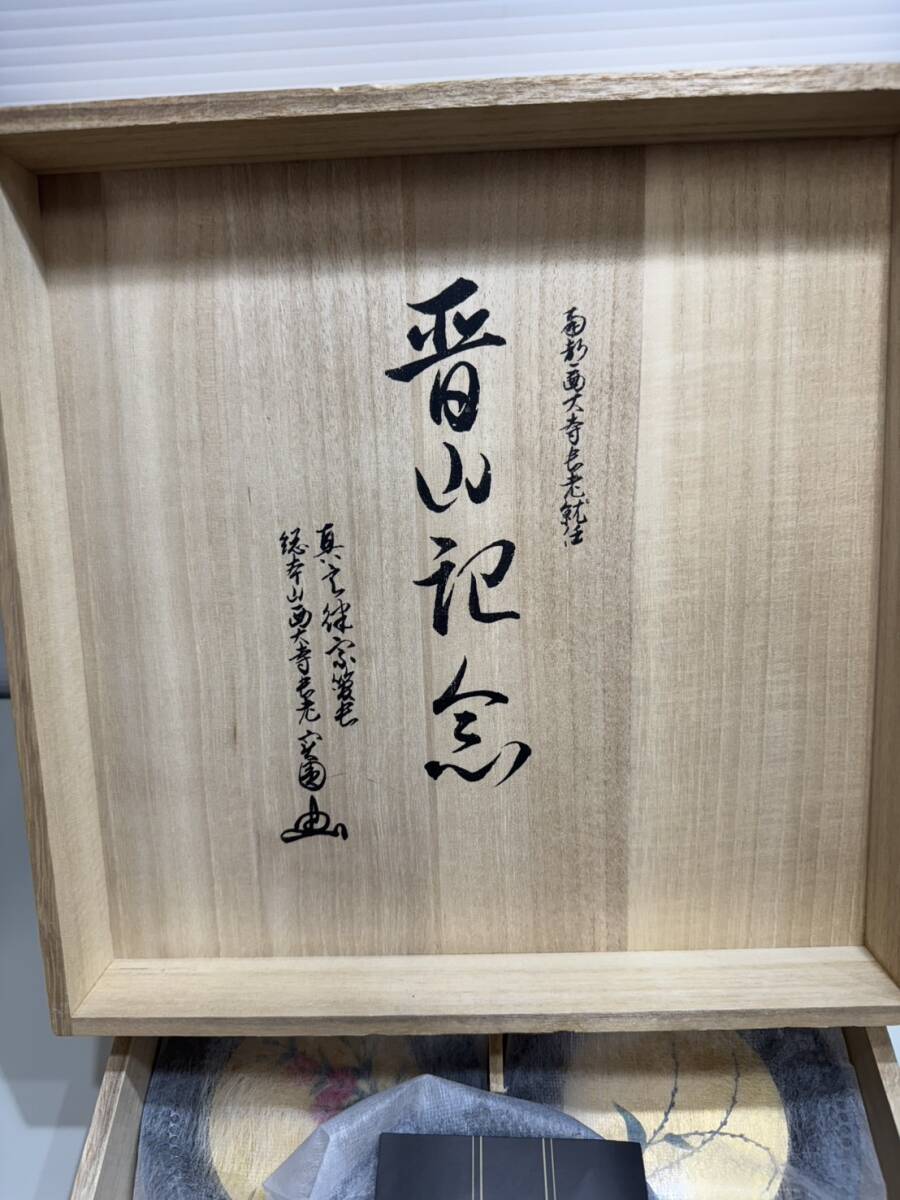 南都西大寺長老就任
晋山記念
真言律宗管長
総本山西大寺長老 実圓